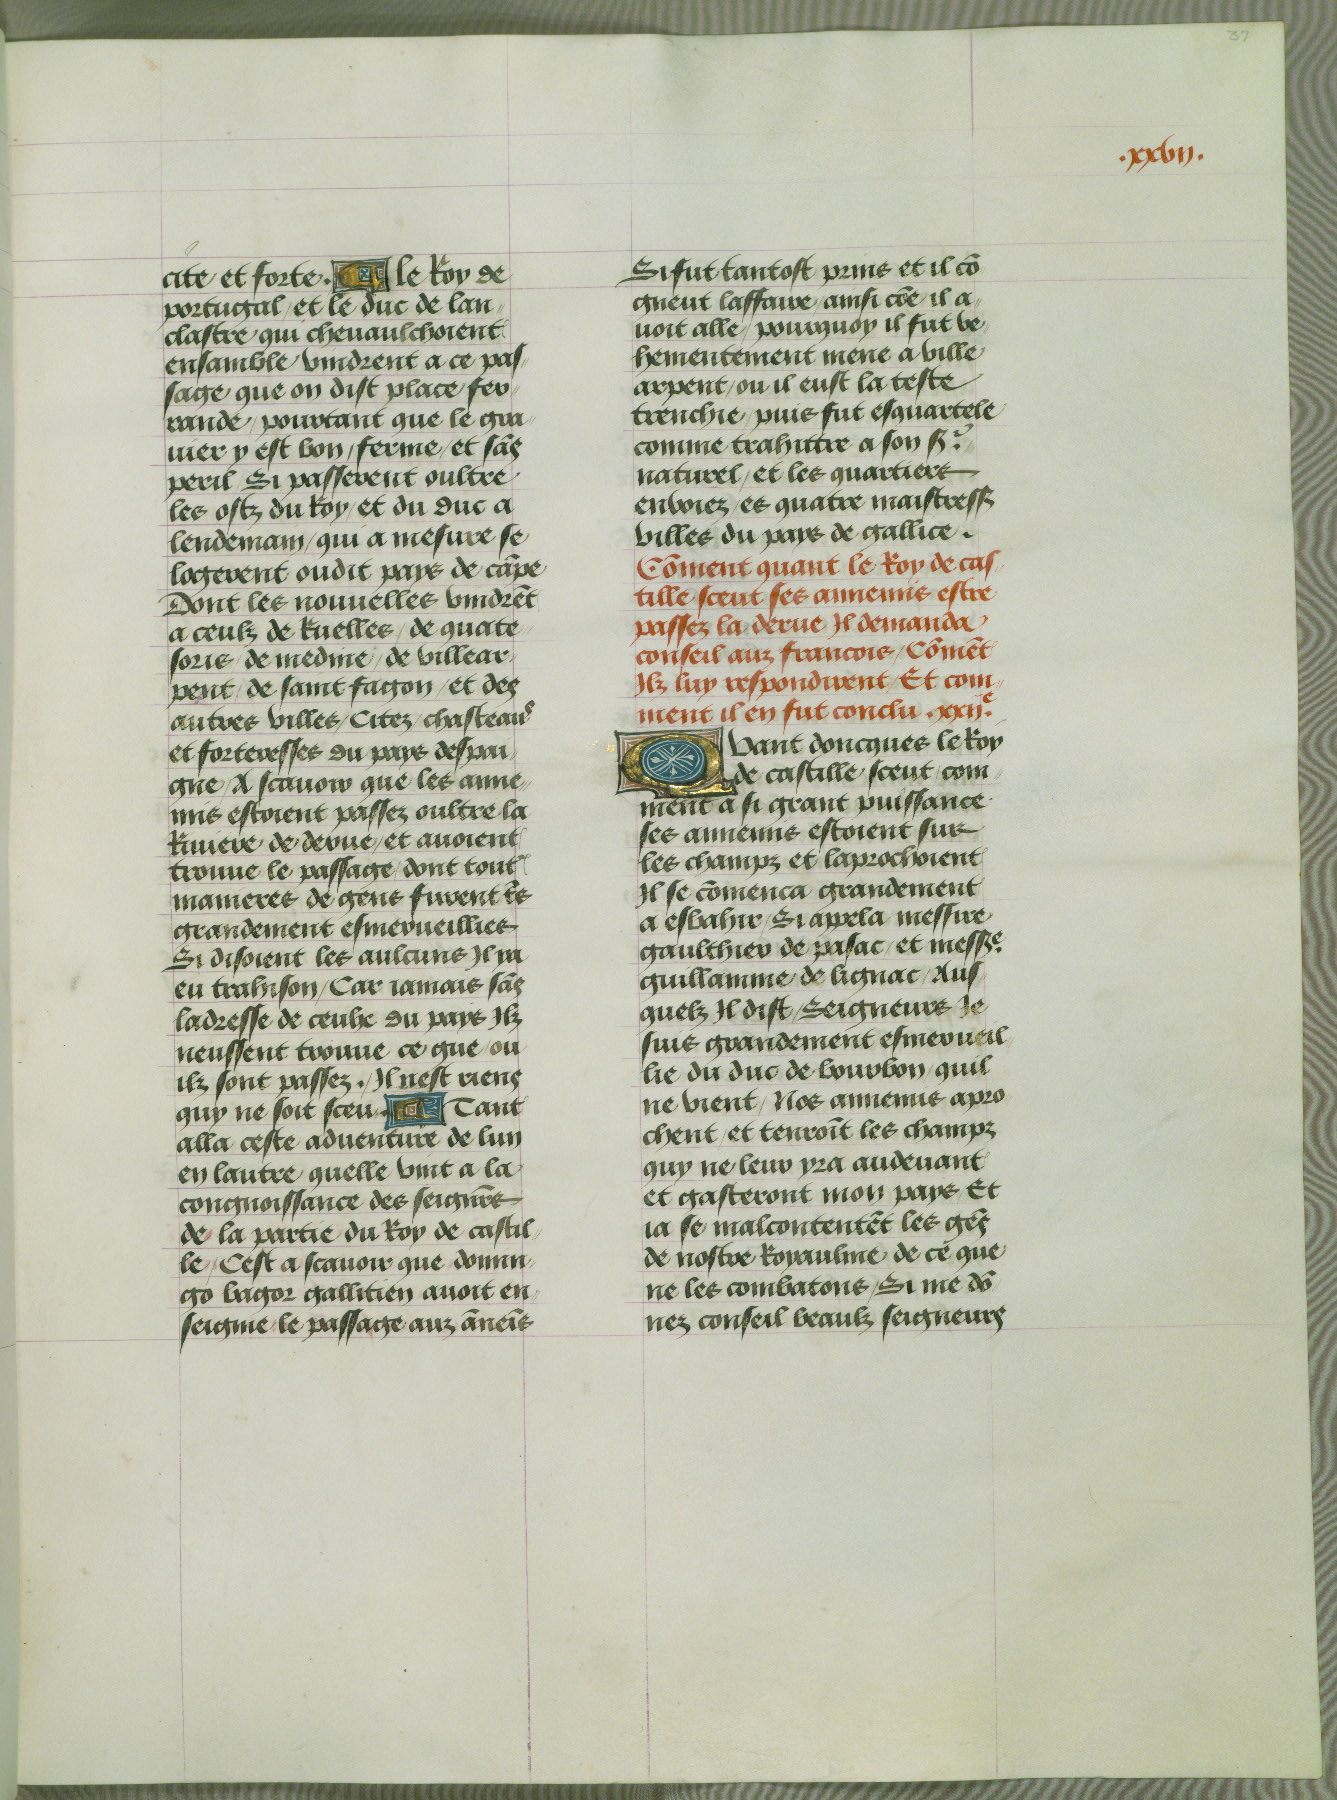 37
.xxvii.
cite et forte. le Roy de
portugal et le duc de lan-
clastre qui cheuaulchoient
ensamble vindrent a ce pas-
sage que on dist place fer-
rande / pourtant que le gra-
uier y est bon / ferme / et sãs
peril Si passerent oultre
les ostz du Roy / et du duc a
lendemain / qui a mesure se
logerent oudit pays de cãpe
Dont les nouuelles vindrẽt
a ceulz de Ruelles / de quate-
soris de medine / de villear-
pent / de saint fagon / et des
autres villes / Citez / chasteaus
et forteresses du pays despai-
gne / A scauoir que les anne-
mis estoient passez oultre la
Riuiere de derne / et auoient
trouue le passage / dont tout
manieres de gens furent tẽs
grandement esmerueillies
Si disoient les aulcuns Il ya
eu trahison / Car iamais sãs
ladresse de ceulx du pays Ilz
neussent trouue ce gue / ou
ilz sont passez . Il nest riens
quy ne soit sceu. Tant
alla ceste aduenture de lun
en lautre quelle vint a la
congnoissance des seignẽrs
de la partie du Roy de castil-
le / Cest a scauoir que domin-
go bagor gallitien auoit en-
seignie le passage aux ãnẽis
Si fut tantost prins et il cõ
gneut laffaire / ainsi cõe il a-
uoit alle / pourquoy il fut ve-
hementement mene a ville
arpent / ou il eust la teste
trenchie / puis fut esquartele
comme trahittre a son sr
naturel / et les quartiers
enuoiez / es quatre maistress
villes du pays de gallice .
Cõment quant le Roy de cas-
tille sceut ses annemis estre
passez la derne Il demanda
conseil aux francois / Cõmẽt
Ilz luy respondirent / Et com-
ment il en fut conclu .xxiie.
Quant doncques le Roy
de castille sceut com-
ment a si grant puissance
ses annemis estoient sur
les champz et laprochoient
Il se cõmenca grandement
a esbahir / Si apela messire
gaulthier de pasac / et messre.
guillamme de lignac / Aus-
quelz Il dist / Seigneurs Je
suis grandement esmerueil-
lie du duc de bourbon / quil
ne vient / Nos annemis apro
chent / et tenroĩt les champz
quy ne leur yra audeuant
et gasteront mon pays Et
ia se malcontentẽt les gẽs
de nostre Royaulme / de ce que
ne les combatons / Si me dõ
nez conseil beaulz seigneurs